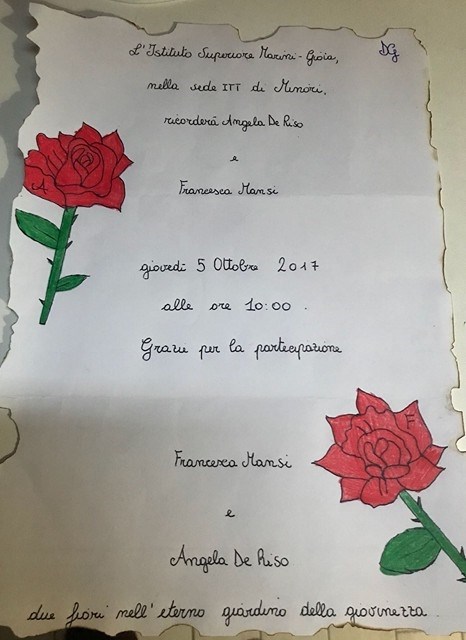 DG
L'Istituto Superiore Marini-Gioia,
nella sede ITT di Minori,
ricorderà Angela De Riso
e
Francesca Mansi
giovedì 5 Ottobre 2017
alle ore 10:00.
Grazie per la partecipazione
Francesca Mansi
e
Angela De Riso
due fiori nell'eterno giardino della giovinezza
A
F